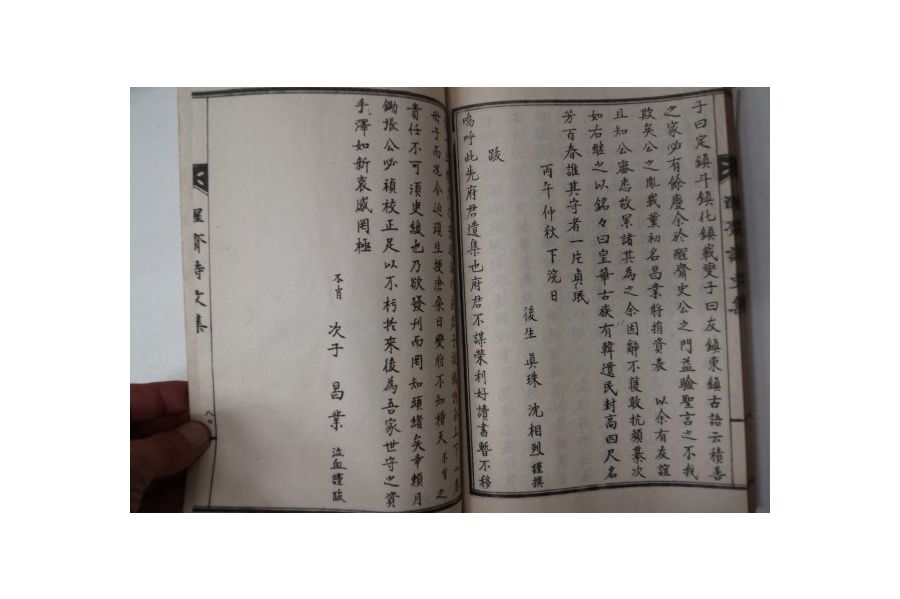 子曰定鎭斗鎭化鎭載燮子曰友鎭東鎭古語云積善
之家必有餘慶余於醒齋史公之門益驗聖言之不我
欺矣公之胤載董初名昌業將捐資表 以余有友誼
且知公審悉故累諸其為之余固辭不獲敢抗顔纂次
如右継之以銘々曰皇華古族有韓遺民封高四尺名
芳百春誰其守者一片貞珉
丙午仲秋下浣日
後生 眞珠 沈相烈 謹撰
跋
嗚呼此先府君遺集也府君不謀榮利好讀書暫不移
冊子而况今迫頭生梗滄桑日變府不知指天不肖之
責任不可須史緩也乃欲發刊而罔知頭緒矣幸賴月
鋤張公必禎校正足以不朽於來後為吾家世守之資
手澤如新哀感罔極
不肖 次子 昌業 泣血謹跋
醒齋詩文集